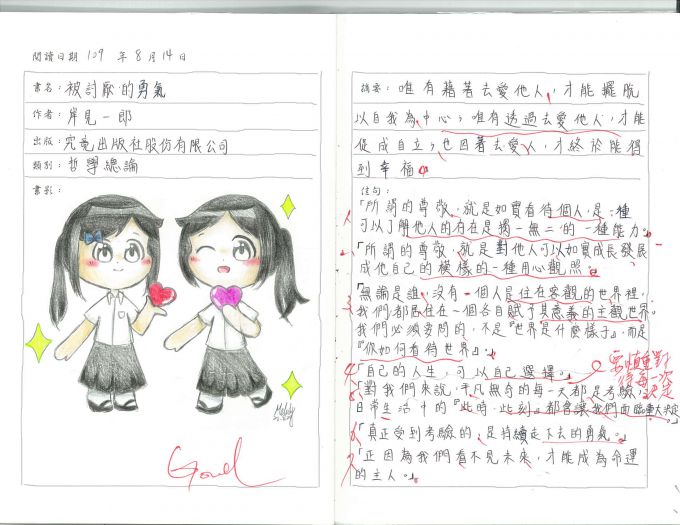 閱讀日期 109 年 8 月 14 日
書名：被討厭的勇氣
作者：岸見一郎
出版：究竟出版社股份有限公司
類別：哲學總論
書影：
Melody
Good
摘要：唯有藉著去愛他人，才能擺脫
以自我為中心；唯有透過去愛他人，才能
促成自立；也因著去愛人，才終於能得
到幸福。
佳句：
「所謂的尊敬，就是如實看待一個人，是一種
可以了解他人的存在是獨一無二的一種能力。」
「所謂的尊敬，就是對他人可以如實成長發展
成他自己的模樣的一種用心觀照。」
「無論是誰，沒有一個人是住在客觀的世界裡，
我們都居住在一個各自賦予其意義的主觀世界。
我們必須要問的，不是『世界是什麼樣子』，而是
『你如何看待世界』。」
「自己的人生，可以自己選擇。」
要慎重對
待每一次
決定
「對我們來說，平凡無奇的每一天都是考驗，
日常生活中的『此時、此刻』都會讓我們面臨重大決定。」
「真正受到考驗的，是持續走下去的勇氣。」
「正因為我們看不見未來，才能成為命運
的主人。」